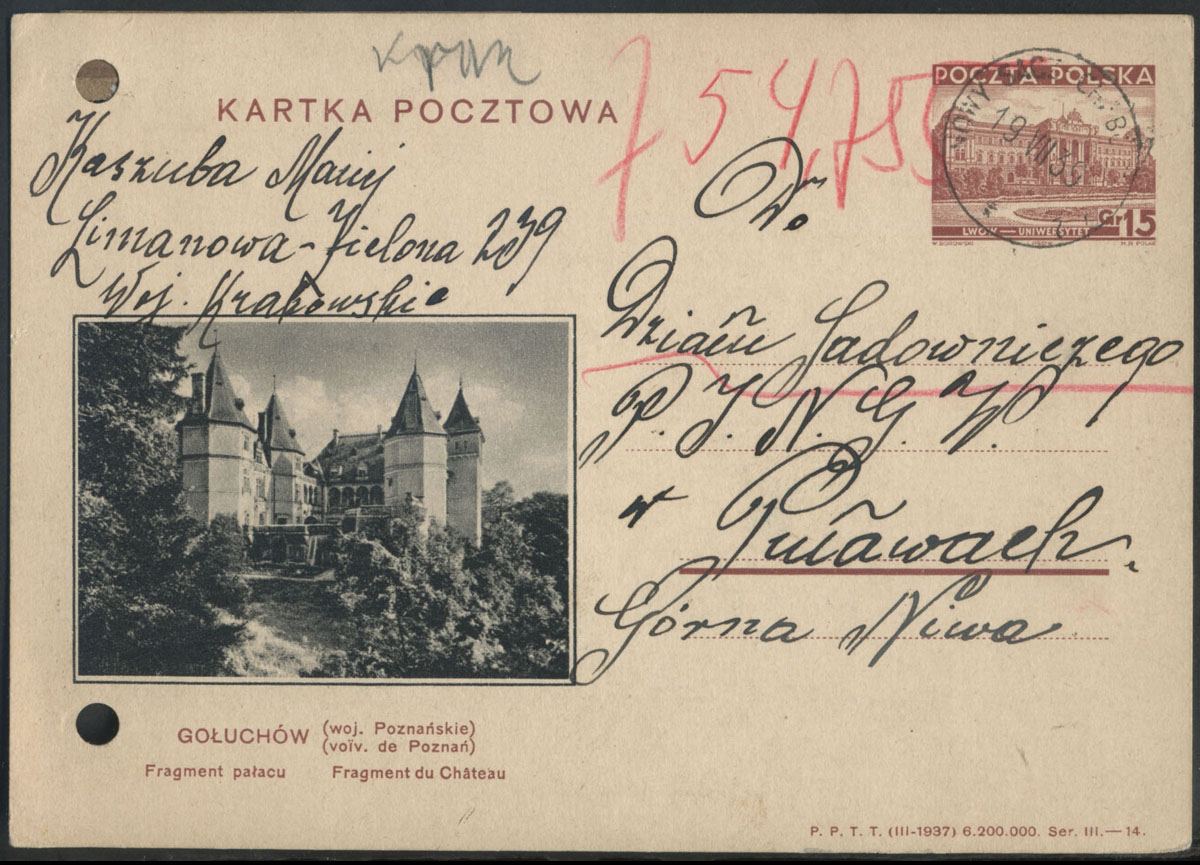 KARTKA POCZTOWA
Kaszuba Maryj
Limanowa - Zielona 239
Woj. Krakowskie
754,75
POCZTA POLSKA
NOWY
19 VII 3
Gr 15
LWÓW — UNIWERSYTET
W. BOROWSKI
M. R. POLAK
Do
Działu Sadowniczego
P. I. N. G. W.
w Puławach.
Górna Niwa
GOŁUCHÓW (woj. Poznańskie)
(voïv. de Poznań)
Fragment pałacu Fragment du Château
P. P. T. T. (III-1937) 6.200.000. Ser. III.—14.